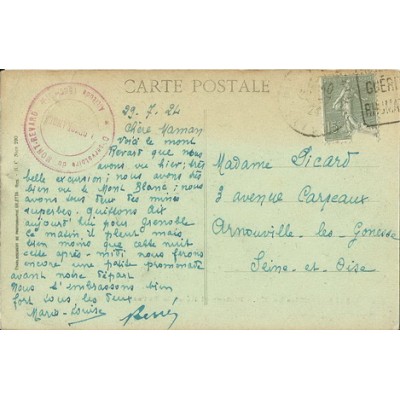 CARTE POSTALE
29.7.24
Chère Maman
Voici le mont
Revard que nous
avons vu hier ; très
belle excursion ; nous avons très
bien vu le Mont Blanc ; nous
avons tous deux des mines
superbes. quittons Aix
aujourd'hui pour Grenoble
Ce matin, il pleut mais
bien moins que cette nuit
cette après-midi nous ferons
encore une petite promenade
avant notre départ
Nous t'embrassons bien
fort tous les deux
Marie-Louise
Madame Picard
3 avenue Carpeaux
Arnouville-les-Gonesse
Seine-et-Oise
MONT-REVARD
GUÉRI
15